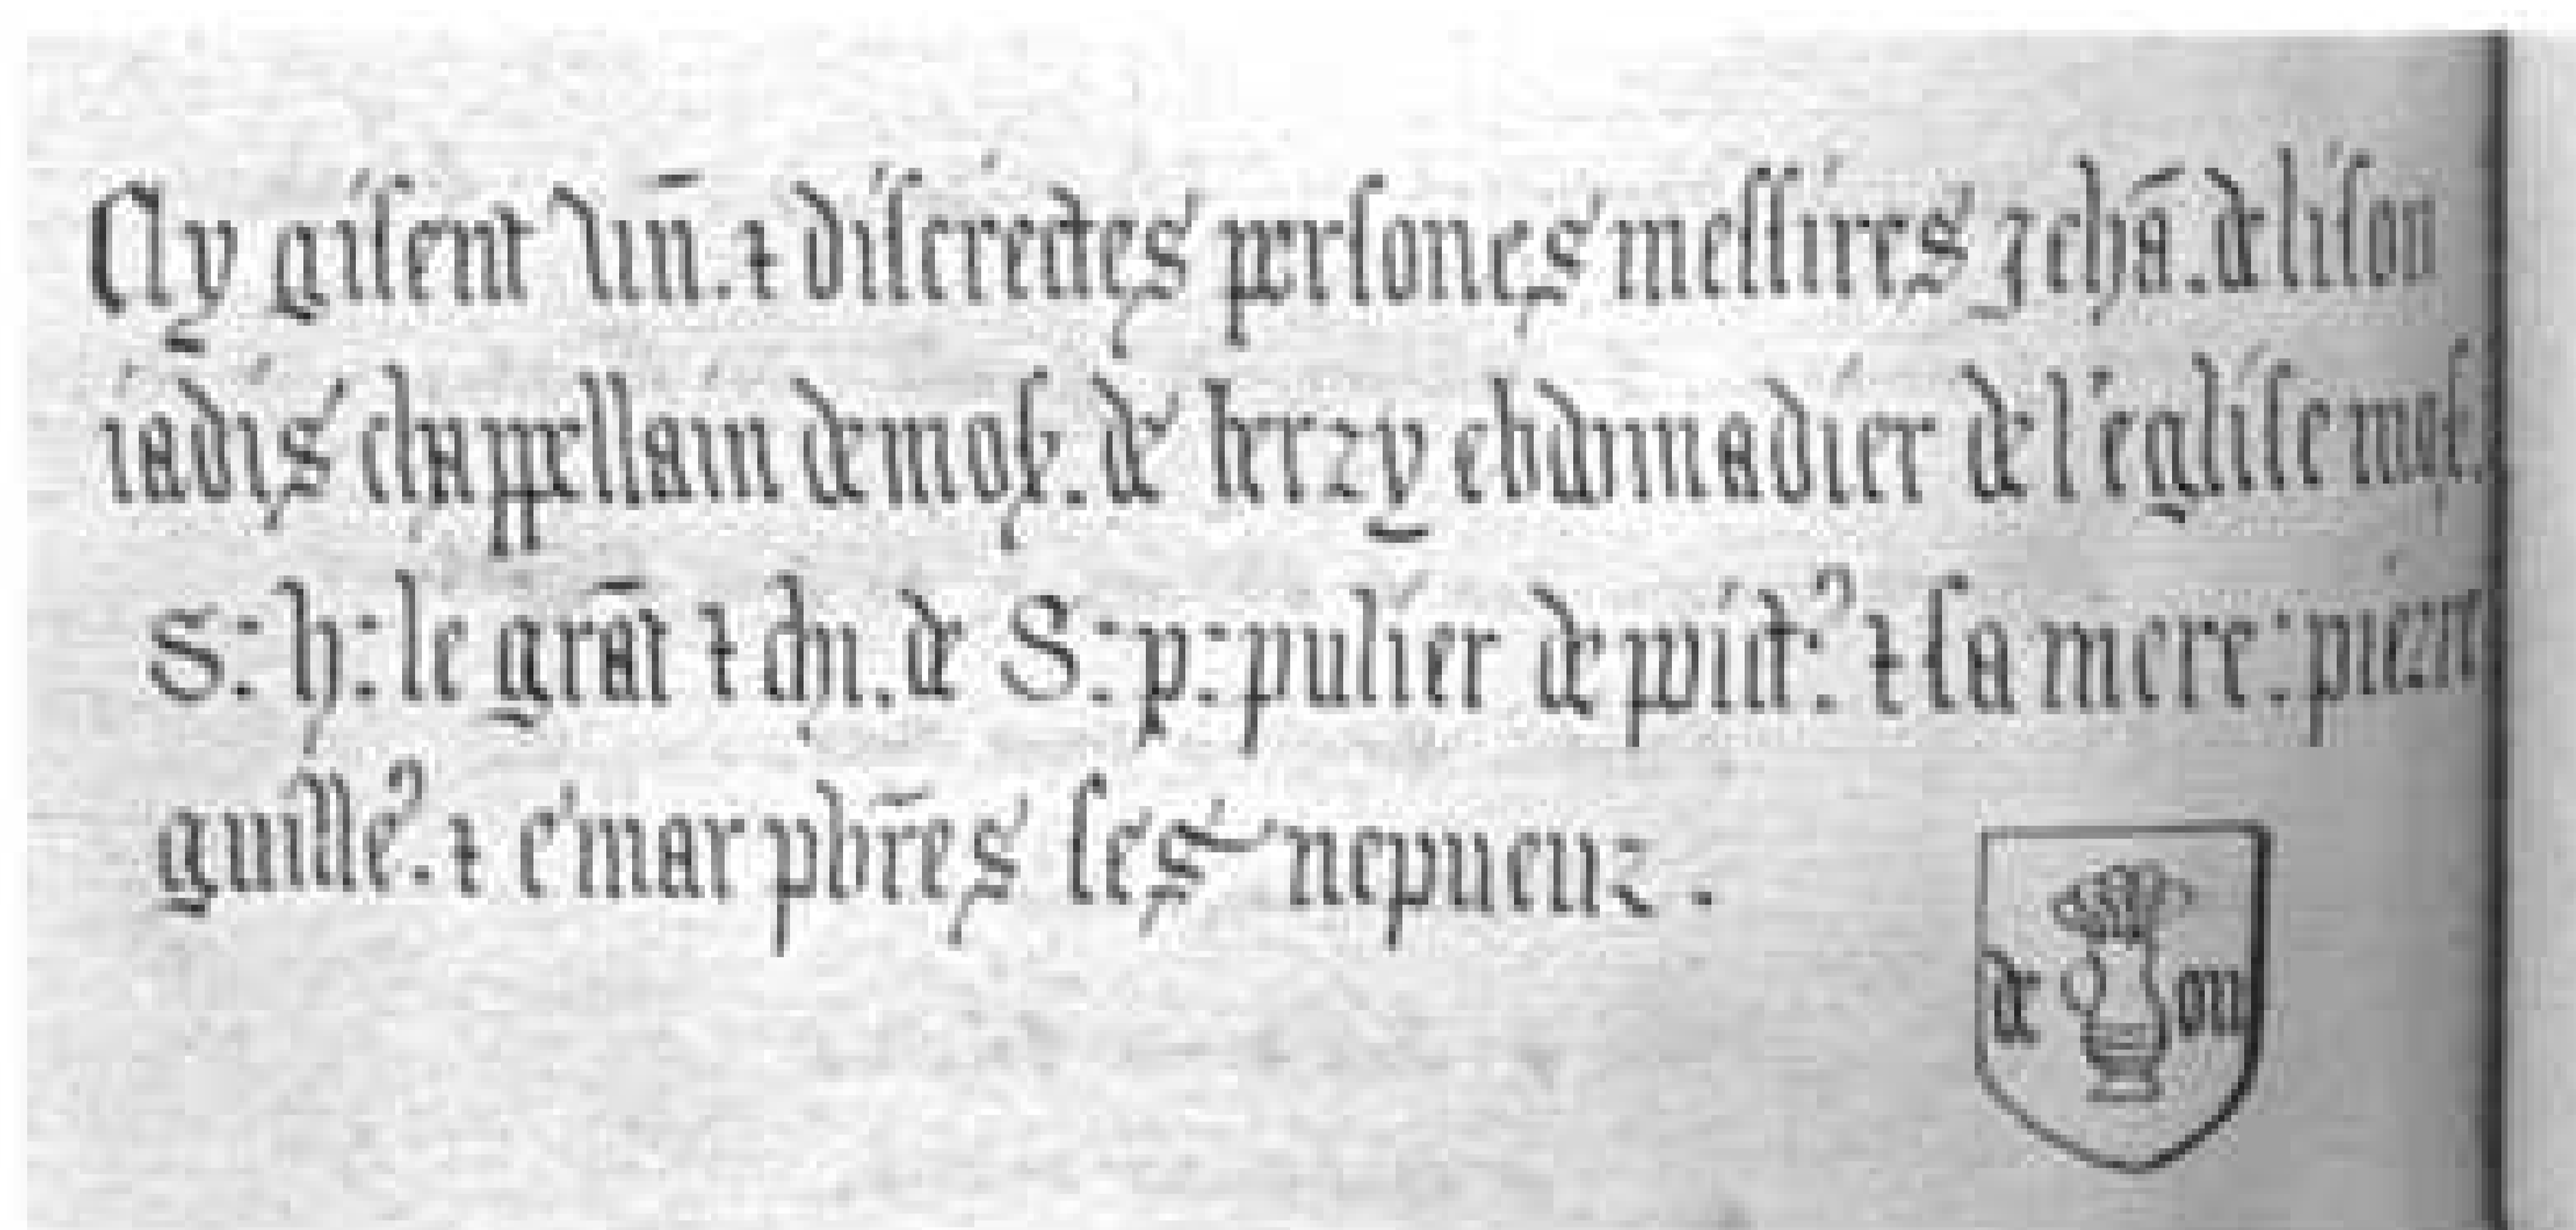 Cy gisent vin̄. ⁊ discrectes persones messires Jehā. de lison
iadis chappellain de mos. de herzy ebdmadier de l'eglise
S: h: le grāt ⁊ ch. de S: p: pulier de pict? ⁊ sa mere: piezn
guille?. ⁊ e'mar pb̄res ses nepueuz.
de on